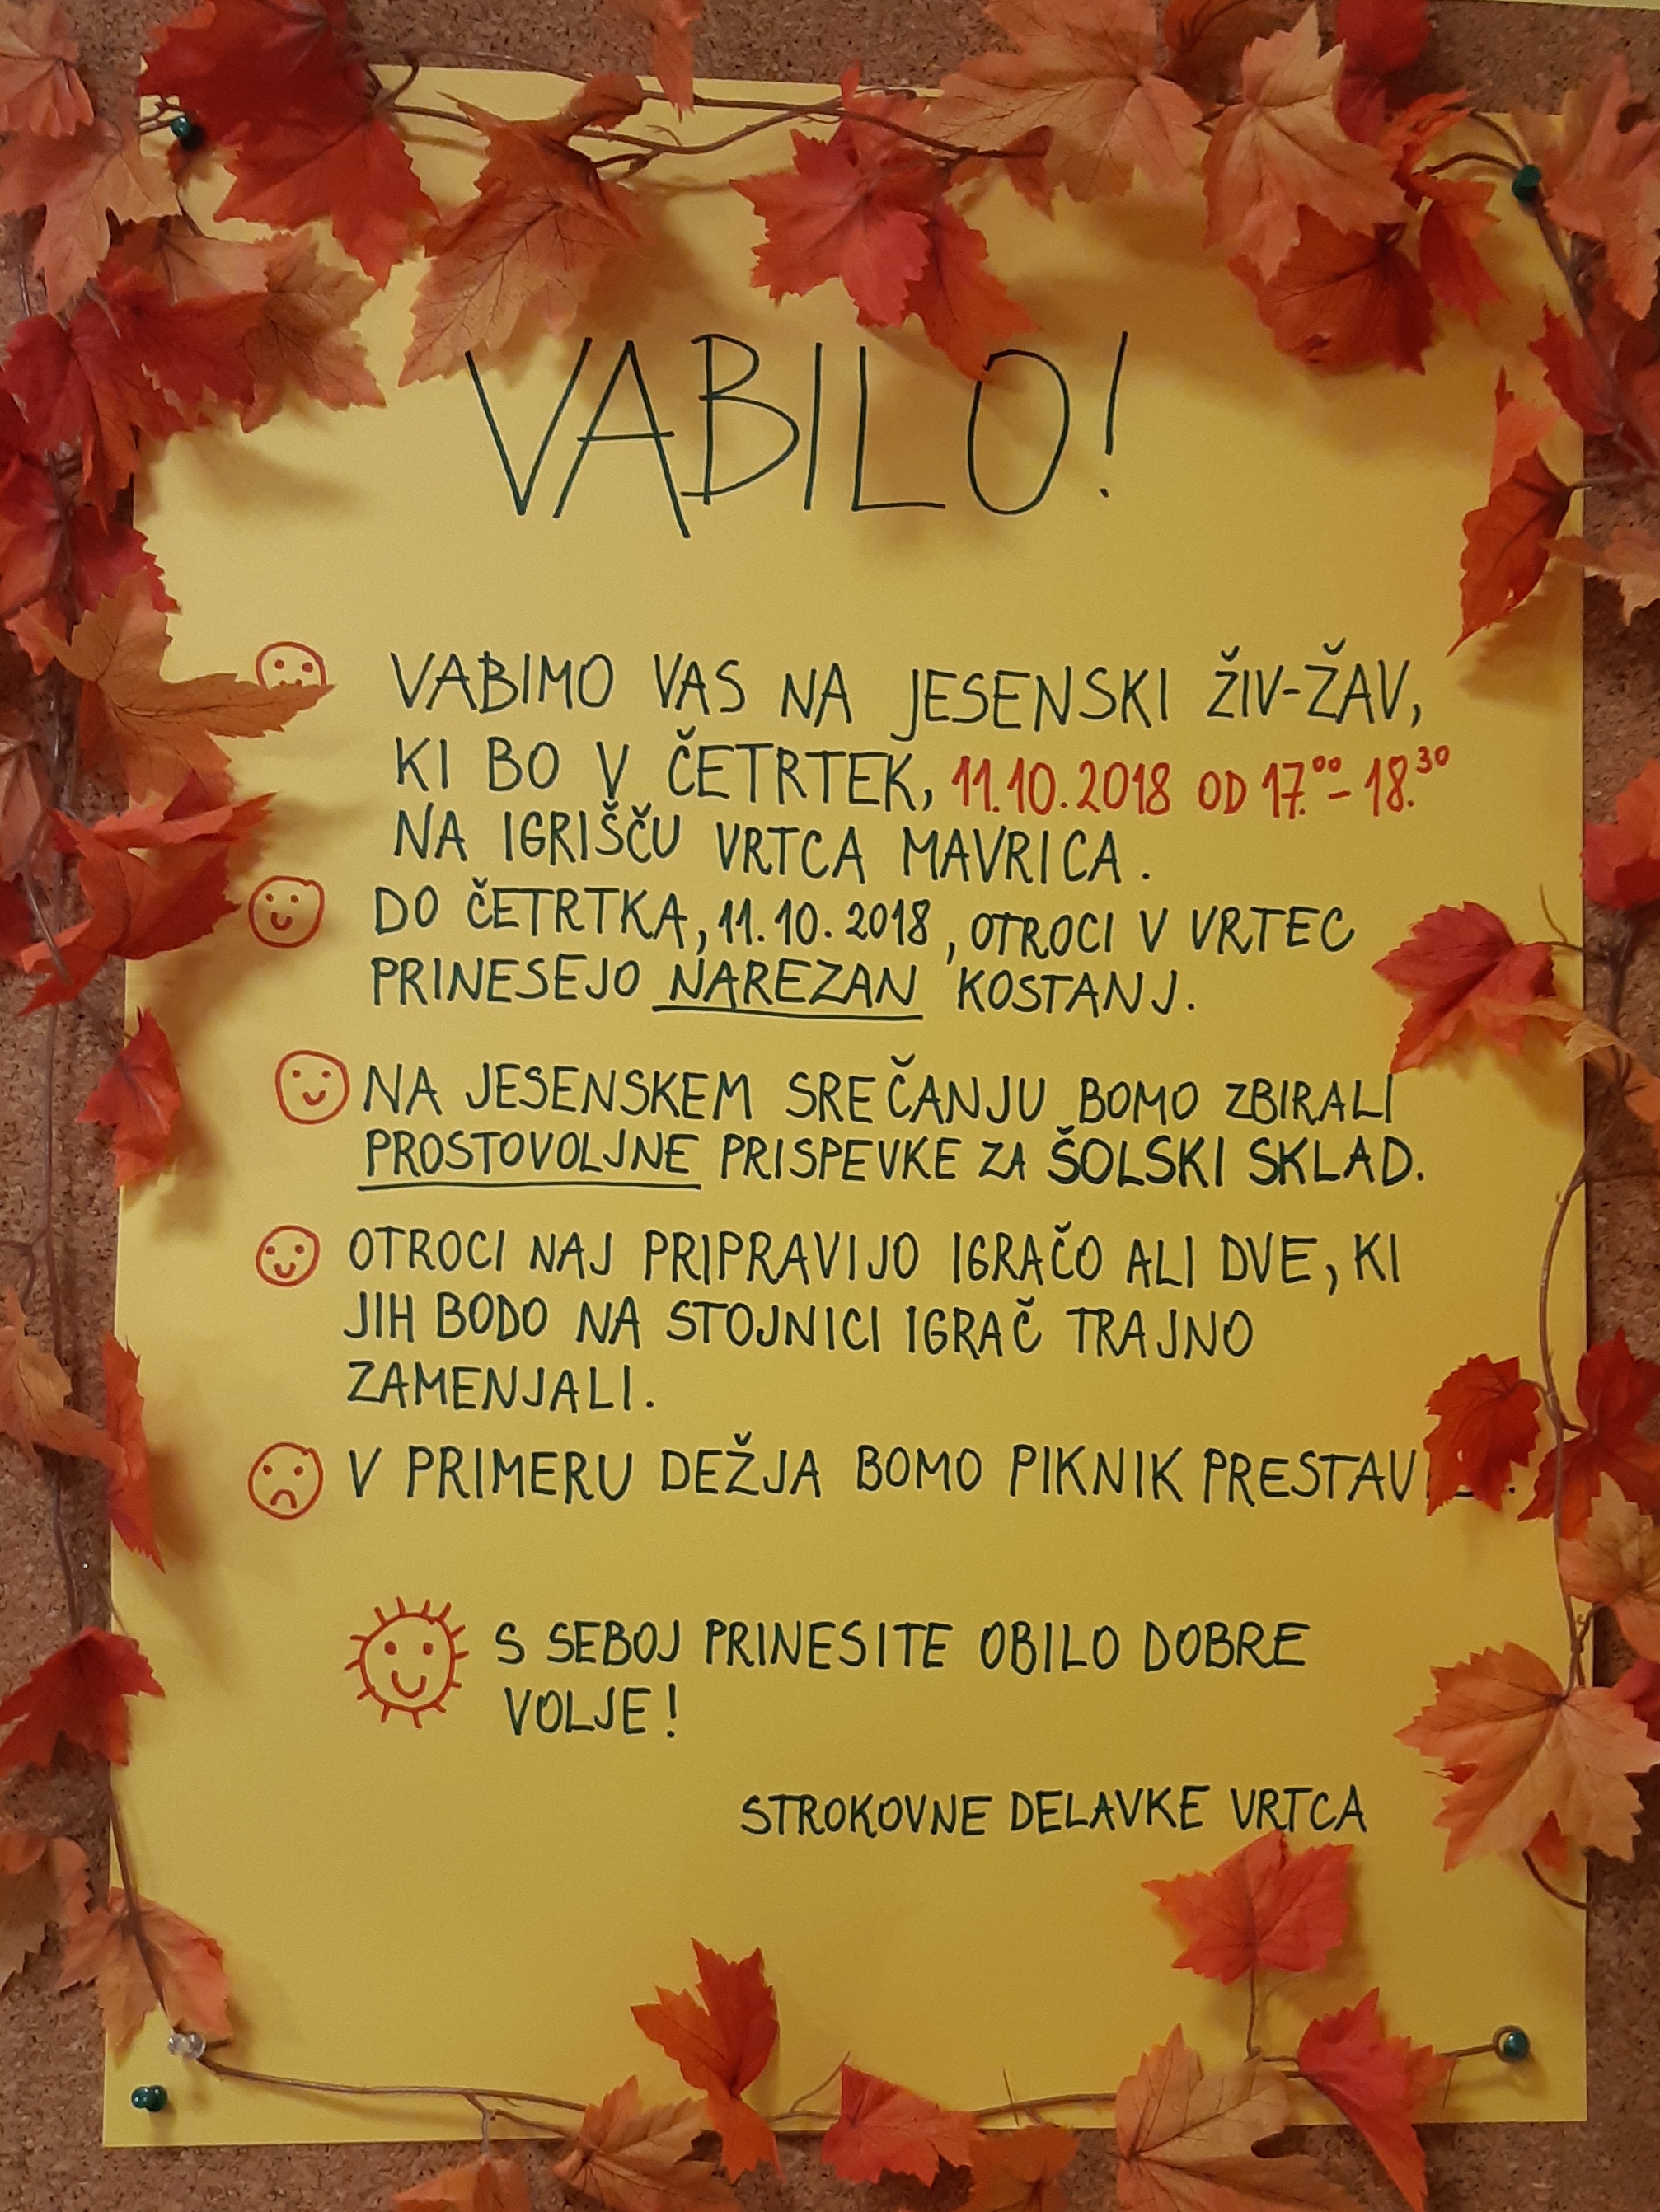 VABILO!
VABIMO VAS NA JESENSKI ŽIV-ŽAV,
KI BO V ČETRTEK, 11.10.2018 OD 17.00 - 18.30
NA IGRIŠČU VRTCA MAVRICA.
DO ČETRTKA, 11.10.2018, OTROCI V VRTEC
PRINESEJO NAREZAN KOSTANJ.
NA JESENSKEM SREČANJU BOMO ZBIRALI
PROSTOVOLJNE PRISPEVKE ZA ŠOLSKI SKLAD.
OTROCI NAJ PRIPRAVIJO IGRAČO ALI DVE, KI
JIH BODO NA STOJNICI IGRAČ TRAJNO
ZAMENJALI.
V PRIMERU DEŽJA BOMO PIKNIK
S SEBOJ PRINESITE OBILO DOBRE
VOLJE!
STROKOVNE DELAVKE VRTCA